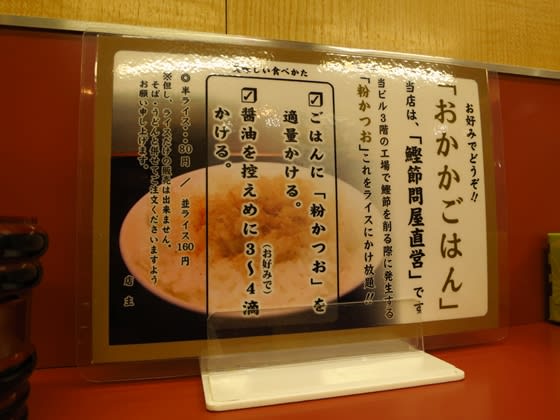 お好みでどうぞ!!
「おかかごはん」
当店は、「鰹節問屋直営」です
当ビル3階の工場で鰹節を削る際に発生する
「粉かつお」これをライスにかけ放題!!
しい食べかた
☑ごはんに「粉かつお」を
適量かける。
☑醤油を控えめに3〜4滴
(お好みで)
かける。
◎半ライス・・・80円 / 並ライス160円
※但し、ライスだけの販売は出来ません。
そば・うどんと併せてご注文くださいますよう
お願い申し上げます。
店主